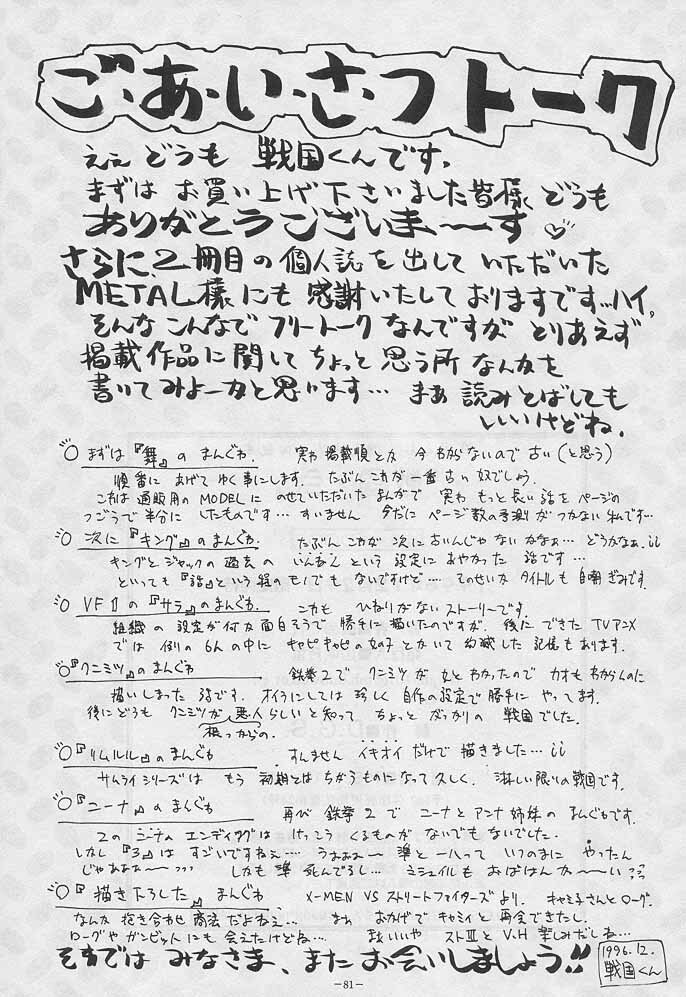 ご・あ・い・さ・つトーク
ええ どうも 戦国くんです。
まずは お買い上げ下さいました皆様 どうも
ありがとうございまーーす♡
さらに、2冊目の個人誌を出していただいた
METAL様にも 感謝いたしておりますです…ハイ。
そんなこんなで フリートークなんですが とりあえず
掲載作品に関して ちょっと思う所なんかを
書いてみよーかと思います… まあ 読みとばしても
いいけどね。
○まずは『舞』のまんぐわ。 実わ 掲載順とか 今わからないので 古い(と思う)
順番に あげてゆく事にします。 たぶんこれが一番古い奴でしょう。
これは 通販用の MODELに のせていただいたまんがで 実わ もっと長い話を ページの
つごうで半分に したものです… すいません 今だに ページ数の予測が つかない私です…
○次に『キング』のまんぐわ。 たぶん これが 次に古いんじゃないかなぁ… どうかなぁ。
キングとジャックの過去の いんねんという 設定に おやかった 話です…
といっても『話』という程のモノでも ないですけど…… そのせいか タイトルも 自嘲ぎみです。
○VFⅡの『サラ』のまんぐわ。 これも ひねりがないストーリーです。
組織の 設定が何か面白そうで 勝手に描いたのですが、後に できた TVアニメ
では 例の 6人の中に キャピキャピの女の子とかいて 幻滅した 記憶もあります。
○『クニミツ』のまんぐわ 鉄拳2で クニミツが 女とわかったので カオもわからんのに
描いしまった 話です。 オイラにしては 珍しく 自作の設定で勝手に やってます。
後にどうも クニミツが 悪人らしいと知って ちょっと がっかりの 戦国でした。
根っからの。
○『リムルル』のまんぐわ すんません イキオイだけで 描きました…
サムライシリーズは もう 初期とは ちがうものになって久しく、淋しい限りの戦国です。
○『ニーナ』のまんぐわ 再び 鉄拳2で ニーナとアンナ姉妹の まんぐわです。
2の ニーナ エンディングは けっこう くるものが ないでもないでした。
しかし『3』は すごいですねぇ… うぉぉぉ〜 準と一八って いつのまに やったん
じゃああぁ〜 しかも 準 死んでるし… ミシェイルも おばはんか〜い
○『描き下ろした』まんぐわ X-MEN VS ストリートファイターズより、キャミ子さんとローグ。
なんか 抱き合わせ 商法だよねぇ… まぁ おかげで キャミィと 再会できたし、
ローグや ガンビットにも 会えたけどね… まぁいいや ストⅢと V.H 楽しみだしね…
それでは みなさま、また お会いしましょう!!
1996.12.
戦国くん
－81－